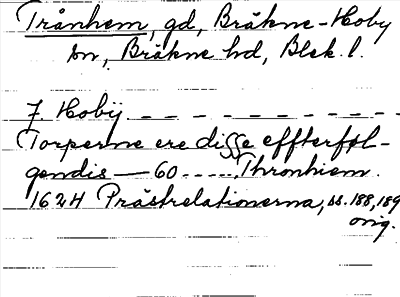 Trånhem, gd, Bräkne-Hoby
sn, Bräkne hd, Blek. l.
J. Hobÿ - - - - - - - - - -
Torperne ere disse effterføl-
gendis — 60 - - - - . Thronhiem.
1624 Prästrelationerna, ss. 188, 189
orig.